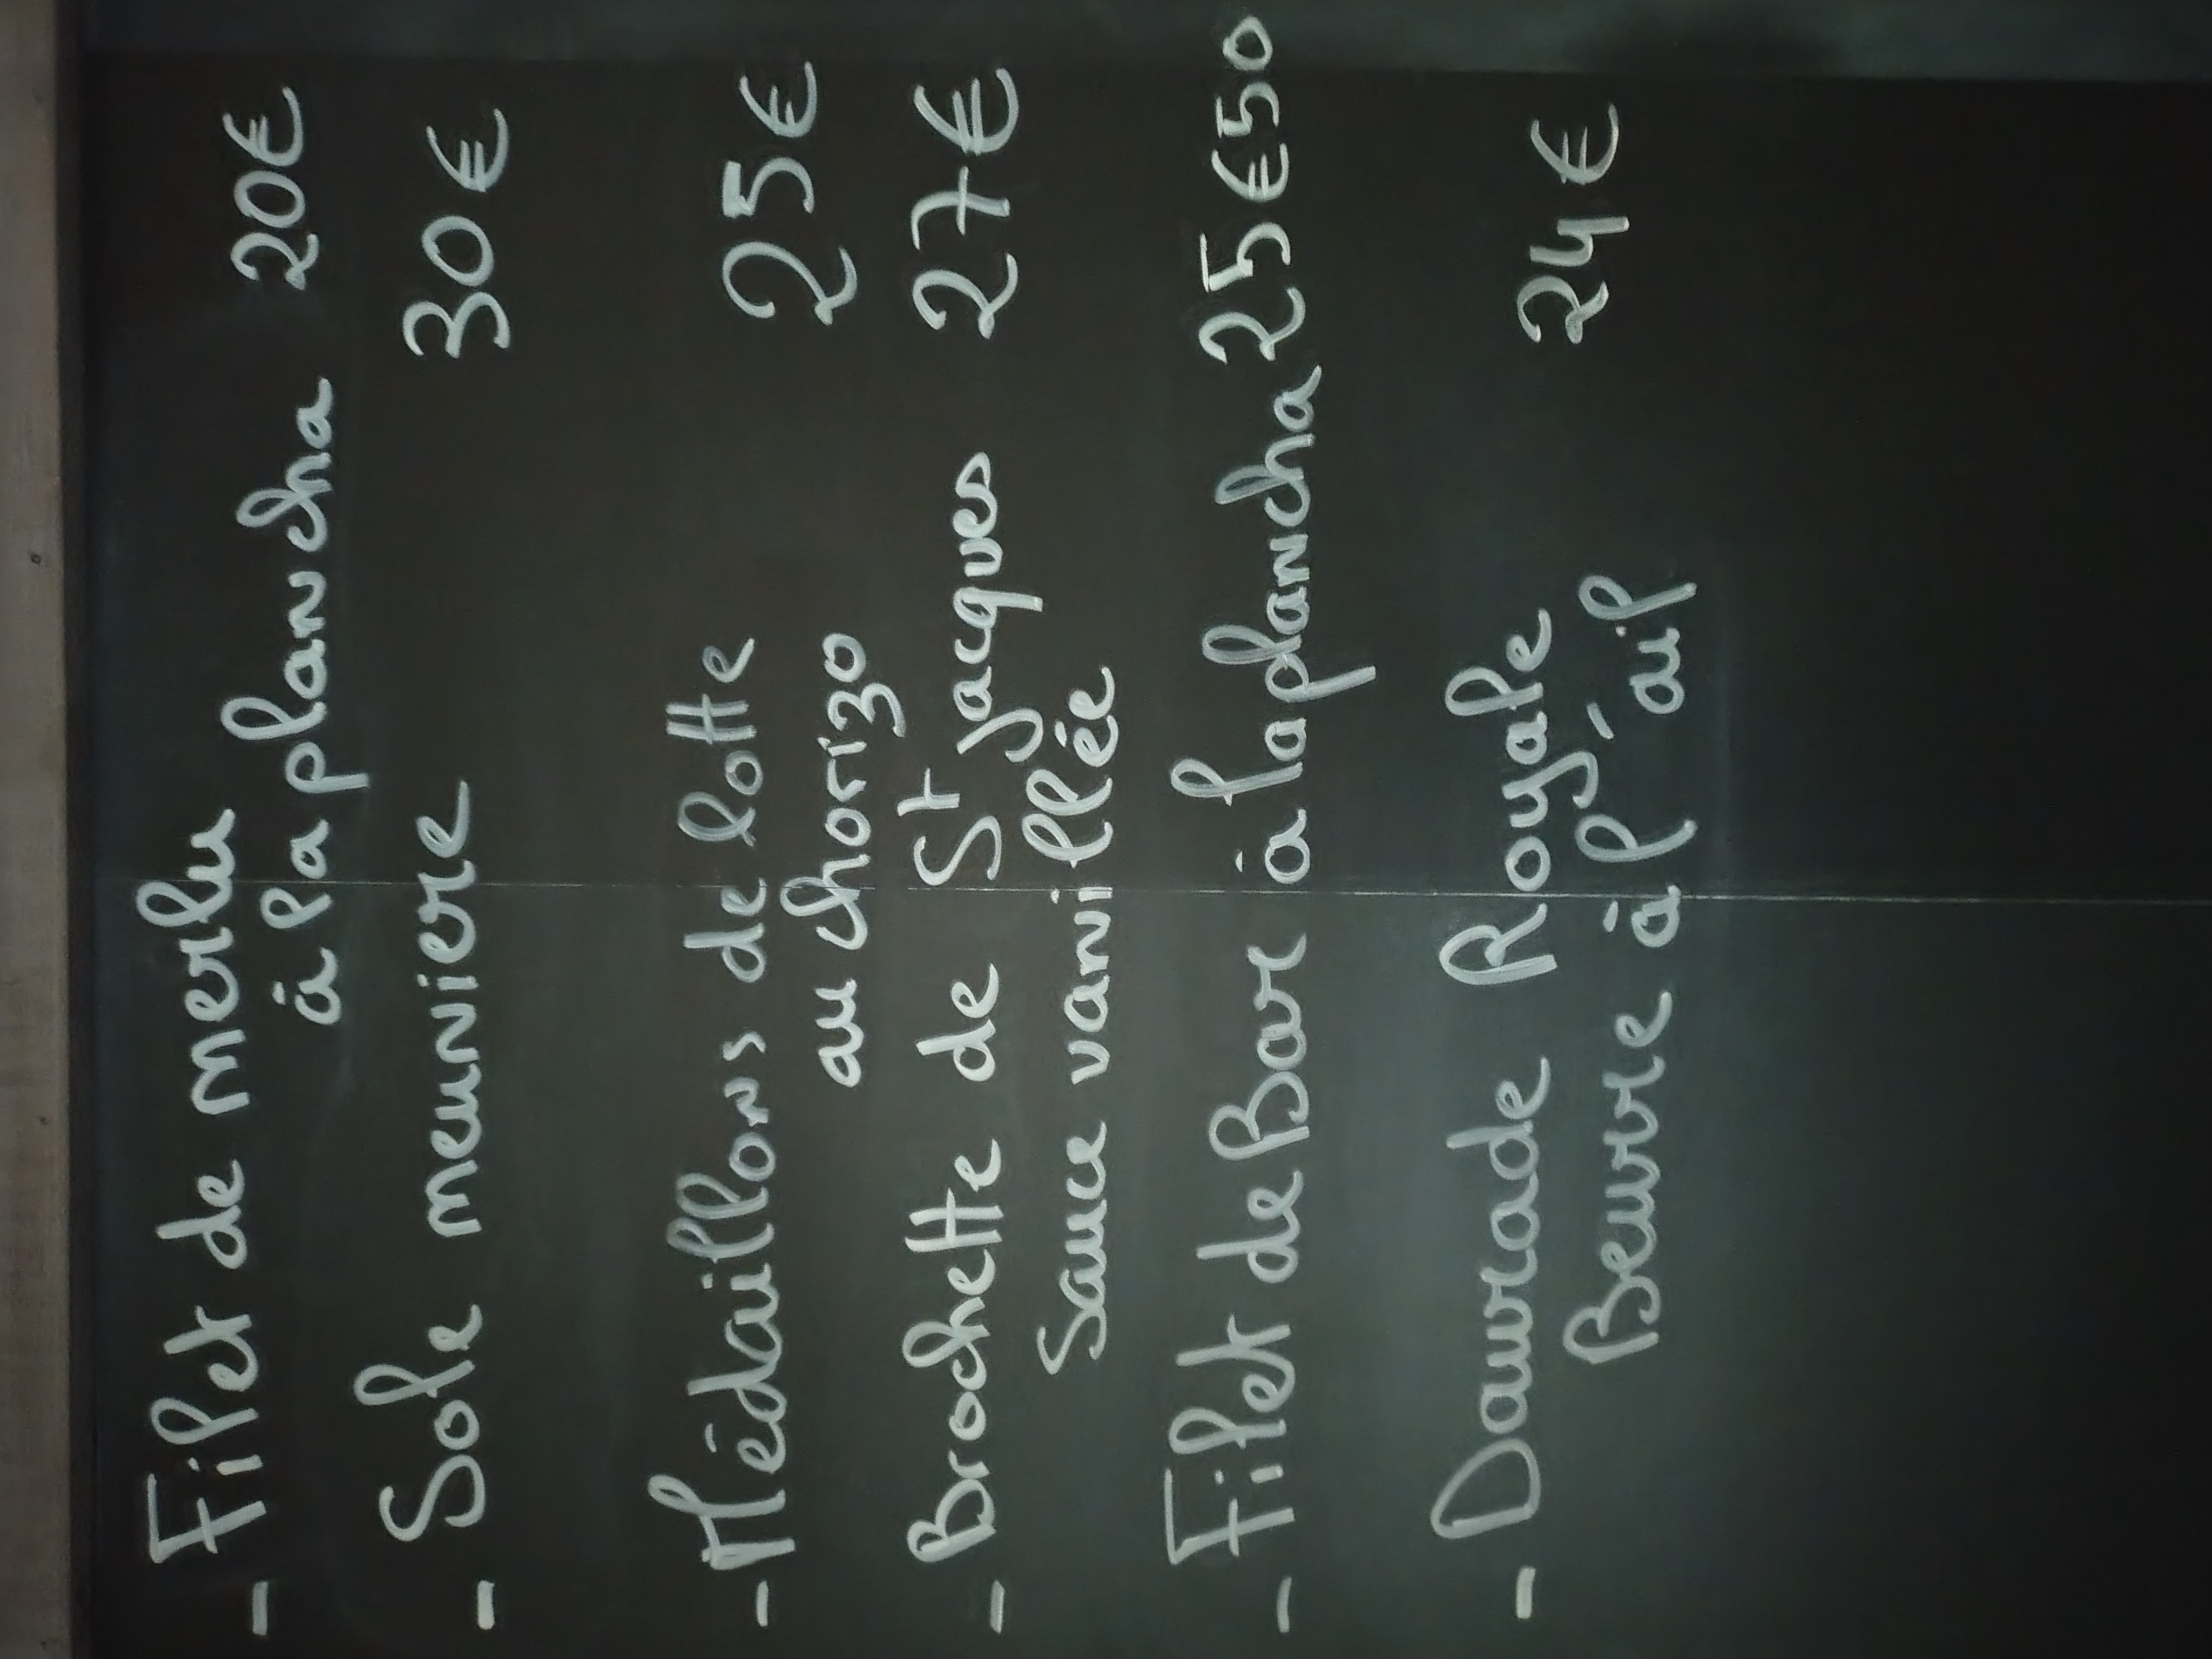 - Filet de merlu
à la plancha 20€
- Sole meuniere 30€
- Médaillons de lotte 25€
au chorizo
- Brochette de St yacques 27€
Sauce vanillée
- Filet de Bar à la plancha 25€50
- Daurade Royale 24€
Beurre à l'ail